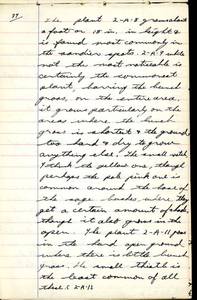 The plant 2-A-8 grows about
a foot or 18 in. in height &
is found most commonly in
the sandier spots. 2-A-9 while
not the most noticeable is
certainly the commonest
plant, barring the bunch
grass, on the entire area,
it grows particularly on the
areas where the bunch
grass is shortest & the ground
too hard & dry to grow
anything else. The small with
the yellow one, though
perhaps the pale pink one is
common around the base of
the sage bushes where they
get a certain amount of shade,
though it also grows in the
open. The plant 2-A-11 grows
in the hard open ground
where there is little bunch
grass. The small thistle is
the least common of all
these. 2-A-12